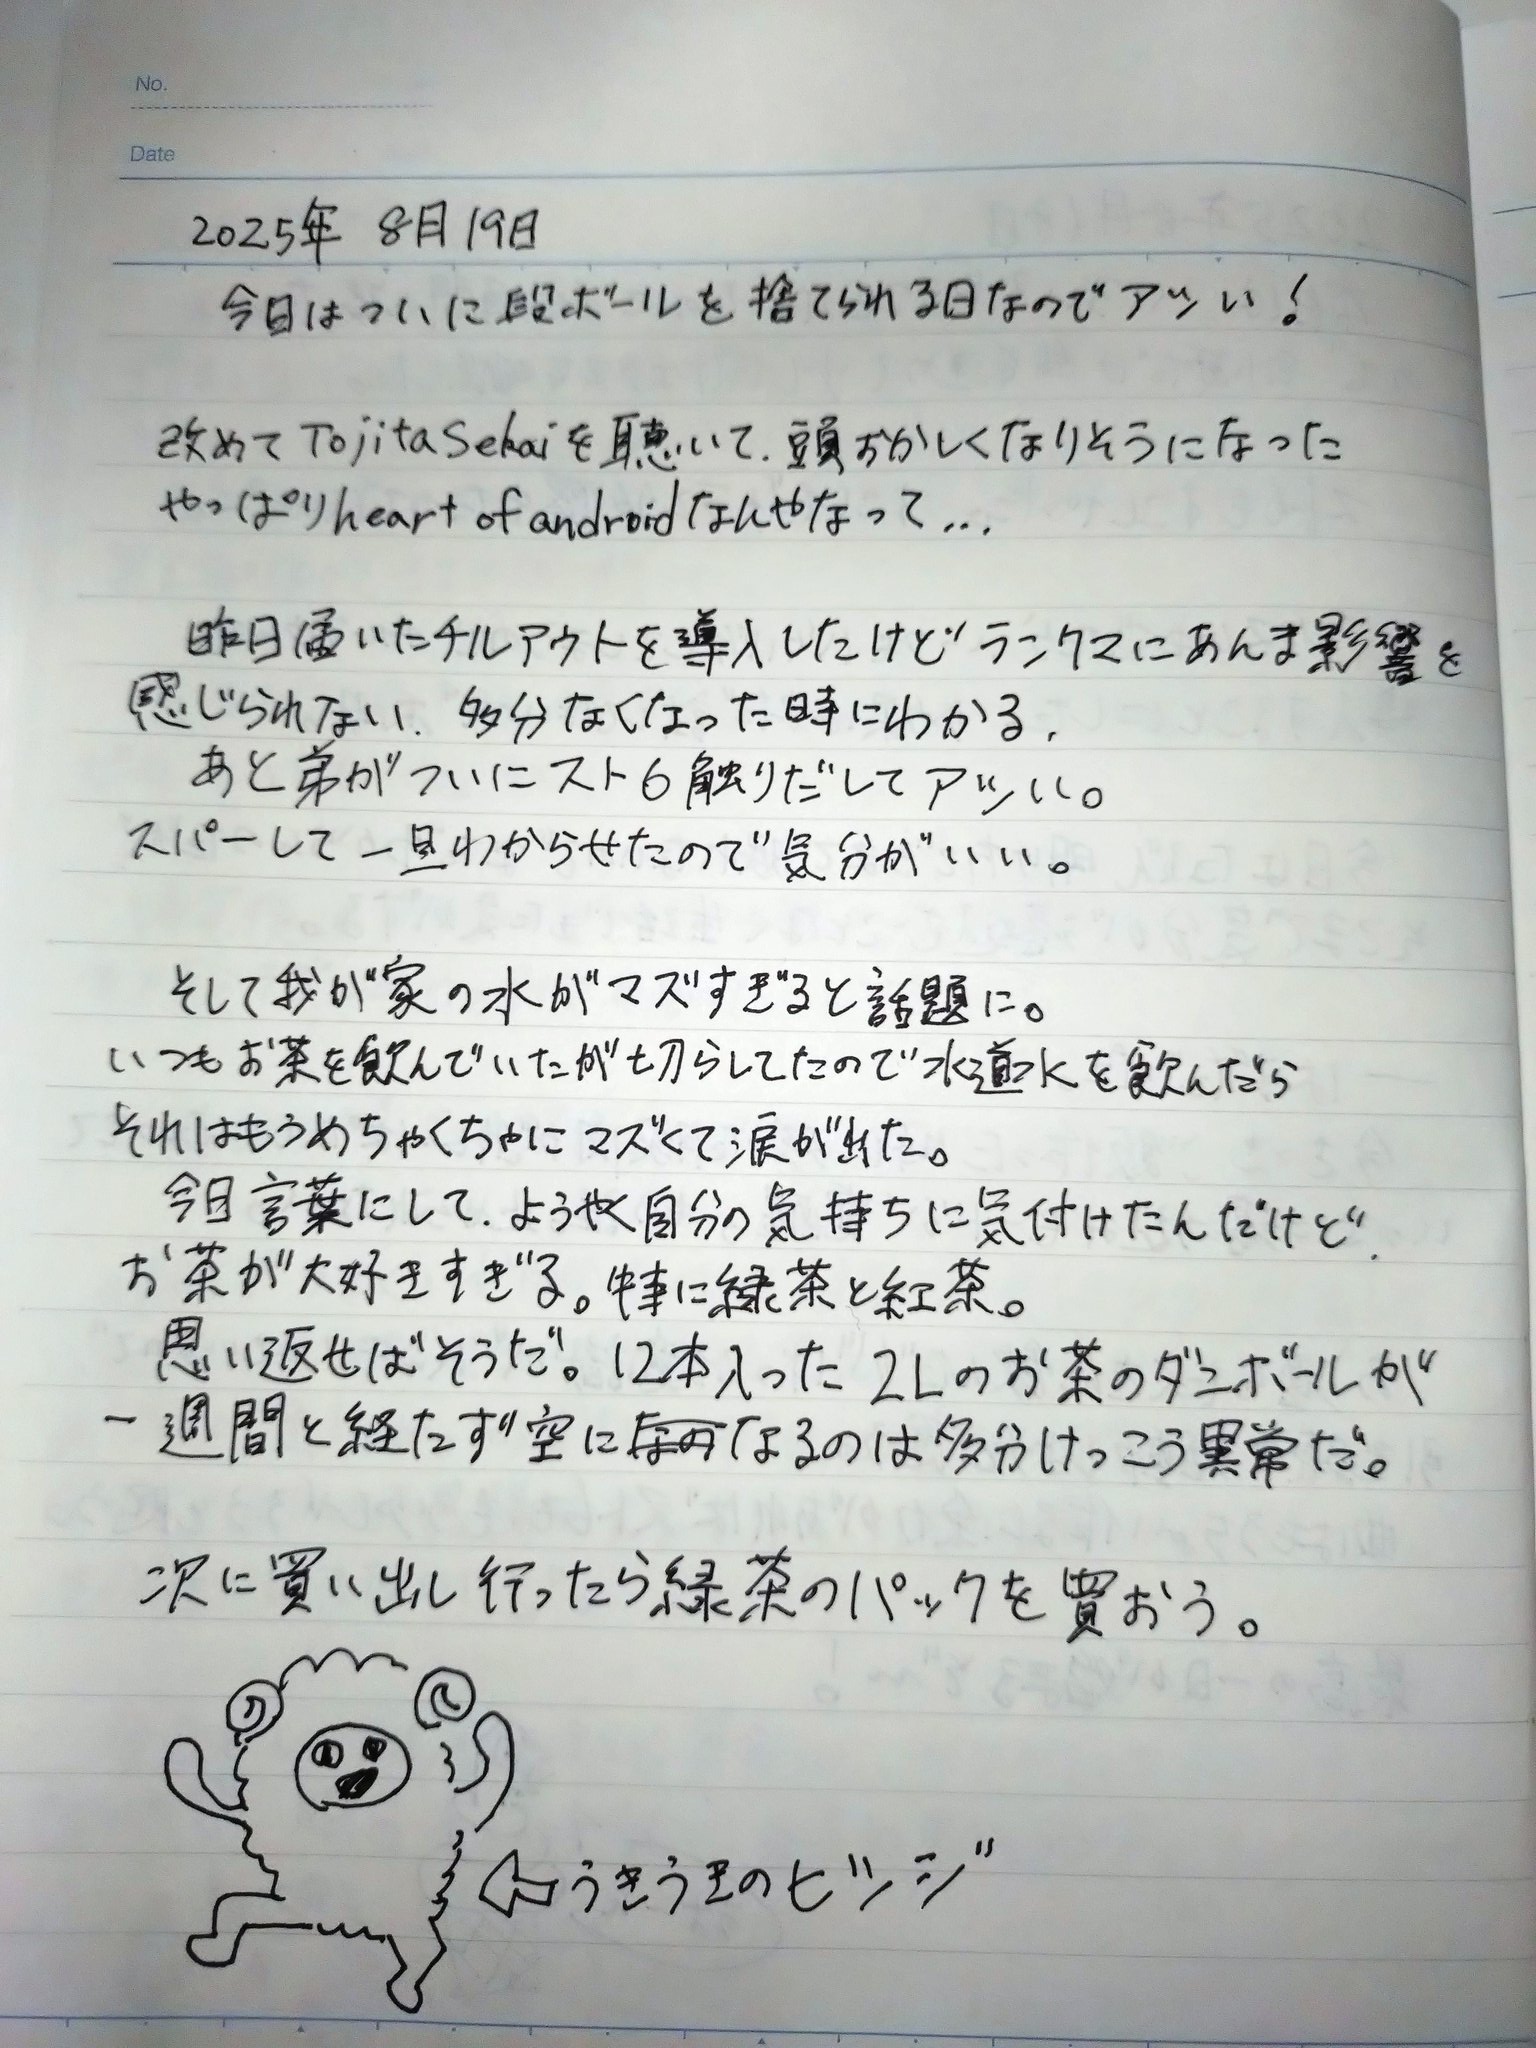 No.
Date
2025年 8月19日
今日はついに段ボールを捨てられる日なのでアツい!
改めてTojitaSekaiを聴いて、頭おかしくなりそうになった
やっぱりheart of androidなんやなって...
昨日届いたチルアウトを導入したけどランクマにあんま影響を
感じられない、多分なくなった時にわかる、
あと弟がついにスト6触りだしてアツい。
スパーして一旦わからせたので気分がいい。
そして我が家の水がマズすぎると話題に。
いつもお茶を飲んでいたが切らしてたので水道水を飲んだら
それはもうめちゃくちゃにマズくて涙が出た。
今日言葉にして、ようやく自分の気持ちに気付けたんだけど、
お茶が大好きすぎる。特に緑茶と紅茶。
思い返せばそうだ。12本入った2Lのお茶のダンボールが
一週間と経たず空になるのは多分けっこう異常だ。
次に買い出し行ったら緑茶のパックを買おう。
うきうきのヒツジ